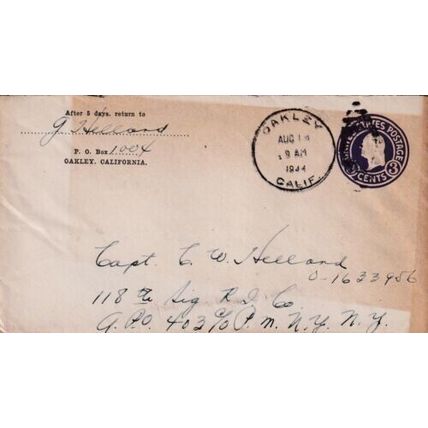 After 5 days, return to
G Helland
P. O. Box 1004
OAKLEY, CALIFORNIA.
OAKLEY
AUG 1
9 AM
1944
CALIF.
STATES POSTAGE
3 CENTS 3
Capt. C. W. Helland
O-1633956
118 th Sig R. I. Co
A.P.O. 403 c/o P. m. N.Y. N.Y.